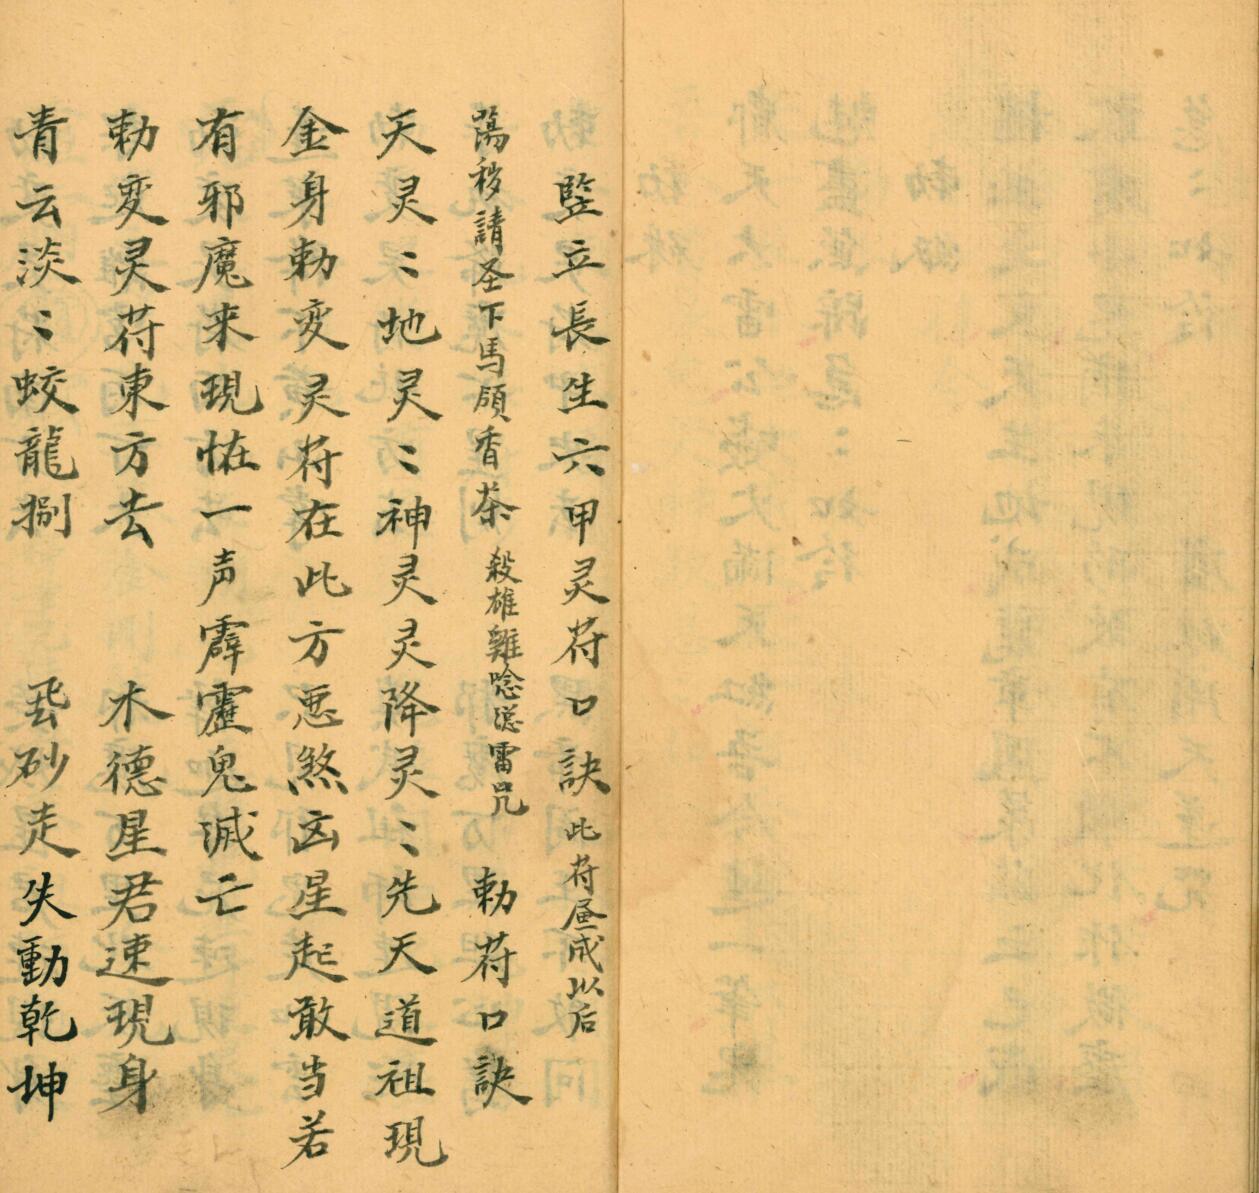 竪立長生六甲灵符口訣此符畫成以后
蕩秽請圣下馬領香茶殺雄雞唸怨雷咒勅符口訣
天灵〻地灵〻神灵灵降灵〻先天道祖現
金身勅变灵符在此方恶煞凶星起敢当若
有邪魔来現怪一声霹靂鬼滅亡
勅变灵符東方去木德星君速現身
青云淡〻蛟龍捌飛砂走失動乾坤